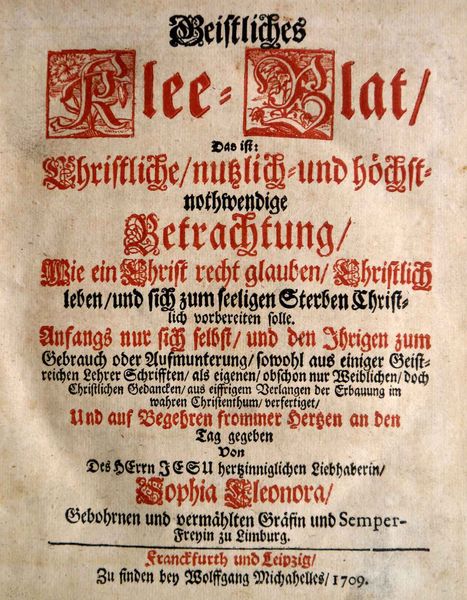 Geistliches
Klee-Blat/
Das ist:
Christliche/nutzlich-und höchst-
nothwendige
Betrachtung/
Wie ein Christ recht glauben/ Christlich
leben/und sich zum seeligen Sterben Christ-
lich vorbereiten solle.
Anfangs nur sich selbst/ und den Ihrigen zum
Gebrauch oder Aufmunterung/ sowohl aus einiger Geist-
reichen Lehrer Schrifften/ als eigenen/ obschon nur Weiblichen/ doch
Christlichen Gedancken/ aus eiffrigem Verlangen der Erbauung im
wahren Christenthum/ verfertiget/
Und auf Begehren frommer Hertzen an den
Tag gegeben
Von
Des HErrn JESU hertzinniglichen Liebhaberin/
Sophia Eleonora/
Gebohrnen und vermählten Gräfin und Semper-
Freyin zu Limburg.
Franckfurth und Leipzig/
Zu finden bey Wolffgang Michahelles/ 1709.